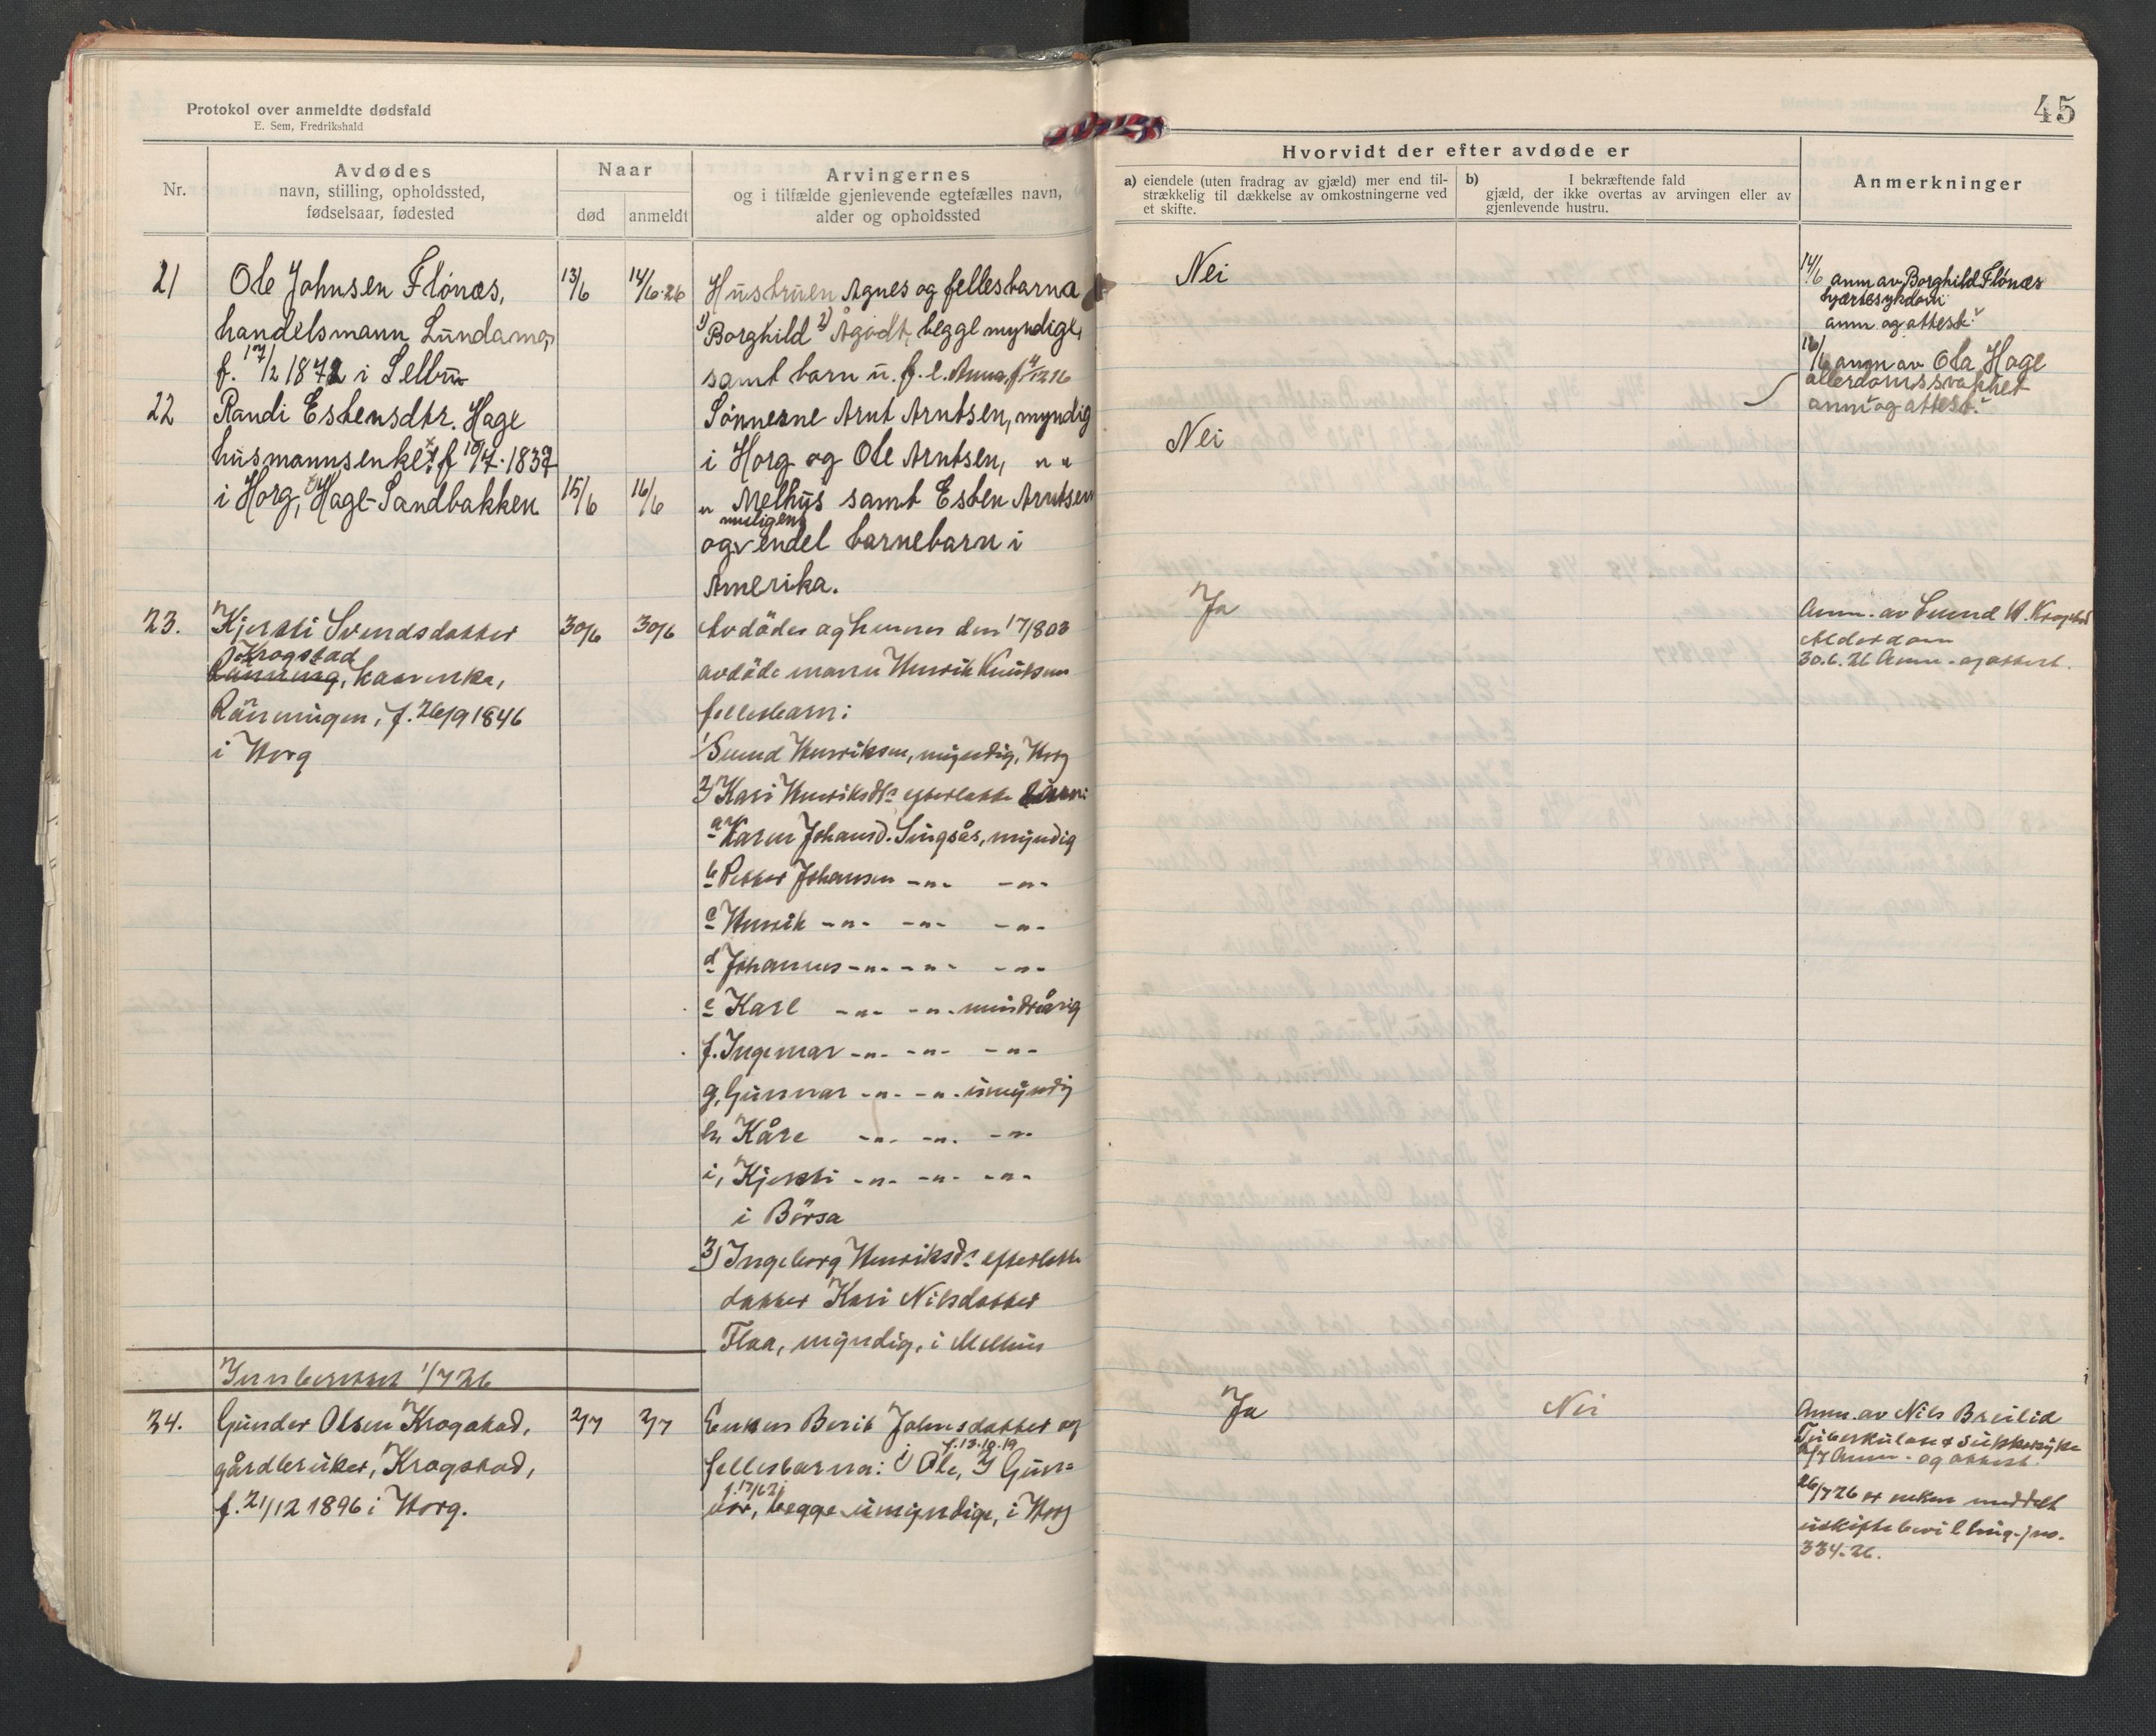 Protokol over anmeldte dødsfald
E. Sem, Fredrikshald
Nr.
Avdødes
navn, stilling, opholdssted,
fødselsaar, fødested
Naar
død
anmeldt
Arvingernes
og i tilfælde gjenlevende egtefælles navn,
alder og opholdssted
21
Ole Johnsen Flönæs,
handelsmann Lundamo,
i Selbu
13/6
14/6-26
Hustruen Agnes og fellesbarna
1) Borghild 2) Ågodt, begge myndige,
samt barn u. f. e. Anna, f.
22
Randi Estensdtr. Hage
husmannsenke, f 10/7.1837
i Horg, Hage-Sandbakken
15/6
16/6
Sønnerne Arnt Arntsen, myndig
i Horg og Ole Arntsen, " "
" Melhus samt Esten Arntsen
muligens
og endel barnebarn i
Amerika.
23.
Kjersti Svendsdatter
Krogstad
Rönning, kaarenke,
Rönningen, f. 26/9 1846
i Horg
30/6
30/6
Avdödes og hennes den
avdöde mann Henrik Knutsen
fellesbarn:
1) Svend Henriksen, myndig, Horg
2) Kari Henriksdtr efterlatte barn:
a Karen Johansd. Singsås, myndig
b Petter Johansen -"- -"-
c Henrik -"- -"- -"-
d Johannes -"- -"- -"-
e Karl -"- -"- mindreårig
f. Ingemar -"- -"- -"-
g, Gunnar -"- -"- umyndig
h, Kåre -"- -"- -"-
i, Kjersti -"- -"- -"-
i Börsa
3) Ingeborg Henriksdr efterlatte
datter Kari Nilsdatter
Flaa, myndig, i Melhus
Innberettet 1/7 26
24.
Gunder Olsen Krogstad,
gårdbruker, Krogstad,
f. 21/12 1896 i Horg.
2/7
2/7
Enken Berit Johnsdatter og
f. 13.10.19
fellesbarna: 1) Ole, 2) Gun=
vor, begge umyndige, i Horg
45
Hvorvidt der efter avdøde er
a) eiendele (uten fradrag av gjæld) mer end til-
strækkelig til dækkelse av omkostningerne ved
et skifte.
b) I bekræftende fald
gjæld, der ikke overtas av arvingen eller av
gjenlevende hustru.
Anmerkninger
Nei
14/6 anm av Borghild Flönæs
hjærtesykdom
anm og attest.
Nei
16/6 anm av Ola Hage
alderdomssvakhet
anm og attest.
Ja
Anm. av Svend H. Krogstad
Alderdom
30.6.26 Anm. og attest.
Ja
Nei
Anm. av Nils Breilid
Tuberkulose & Sukkersyke
2/7 Anm. og attest.
26/7 26 er enken meddelt
uskiftebevilling. jno.
334-26.